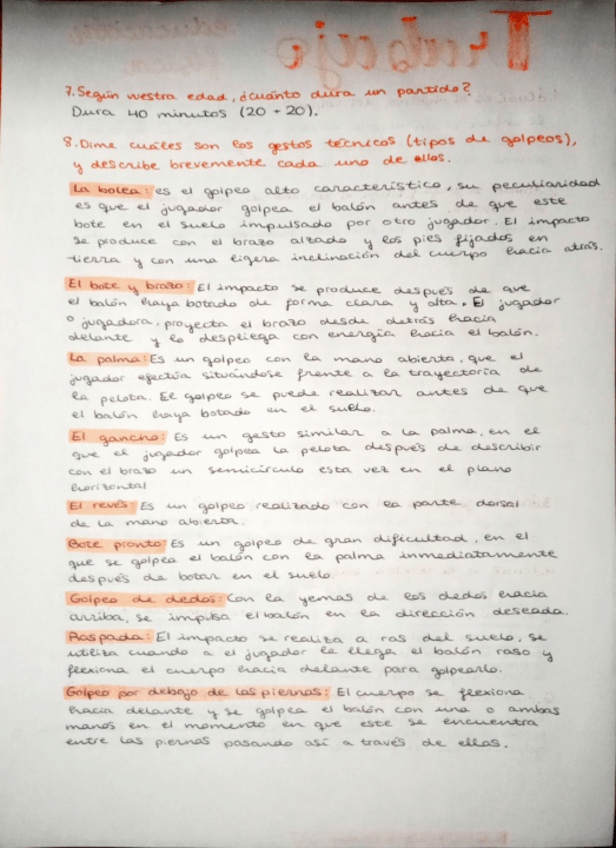 Trabajo
educación
física
7. Según vuestra edad, ¿cuánto dura un partido?
Dura 40 minutos (20 + 20).
8. Dime cuáles son los gestos técnicos (tipos de golpeos),
y describe brevemente cada uno de ellos.
La bolea: es el golpeo alto característico, su peculiaridad
es que el jugador golpea el balón antes de que este
bote en el suelo impulsado por otro jugador. El impacto
se produce con el brazo alzado y los pies fijados en
tierra y con una ligera inclinación del cuerpo hacia atrás.
El bote y brazo: El impacto se produce después de que
el balón haya botado de forma clara y alta. El jugador
o jugadora, proyecta el brazo desde detrás hacia
delante y lo despliega con energía hacia el balón.
La palma: Es un golpeo con la mano abierta, que el
jugador efectúa situándose frente a la trayectoria de
la pelota. El golpeo se puede realizar antes de que
el balón haya botado en el suelo.
El gancho: Es un gesto similar a la palma, en el
que el jugador golpea la pelota después de describir
con el brazo un semicírculo esta vez en el plano
horizontal
El revés: Es un golpeo realizado con la parte dorsal
de la mano abierta.
Bote pronto: Es un golpeo de gran dificultad, en el
que se golpea el balón con la palma inmediatamente
después de botar en el suelo.
Golpeo de dedos: Con la yemas de los dedos hacia
arriba, se impulsa el balón en la dirección deseada.
Raspada: El impacto se realiza a ras del suelo, se
utiliza cuando a el jugador le llega el balón raso y
flexiona el cuerpo hacia delante para golpearlo.
Golpeo por debajo de las piernas: El cuerpo se flexiona
hacia delante y se golpea el balón con una o ambas
manos en el momento en que este se encuentra
entre las piernas pasando así a través de ellas.